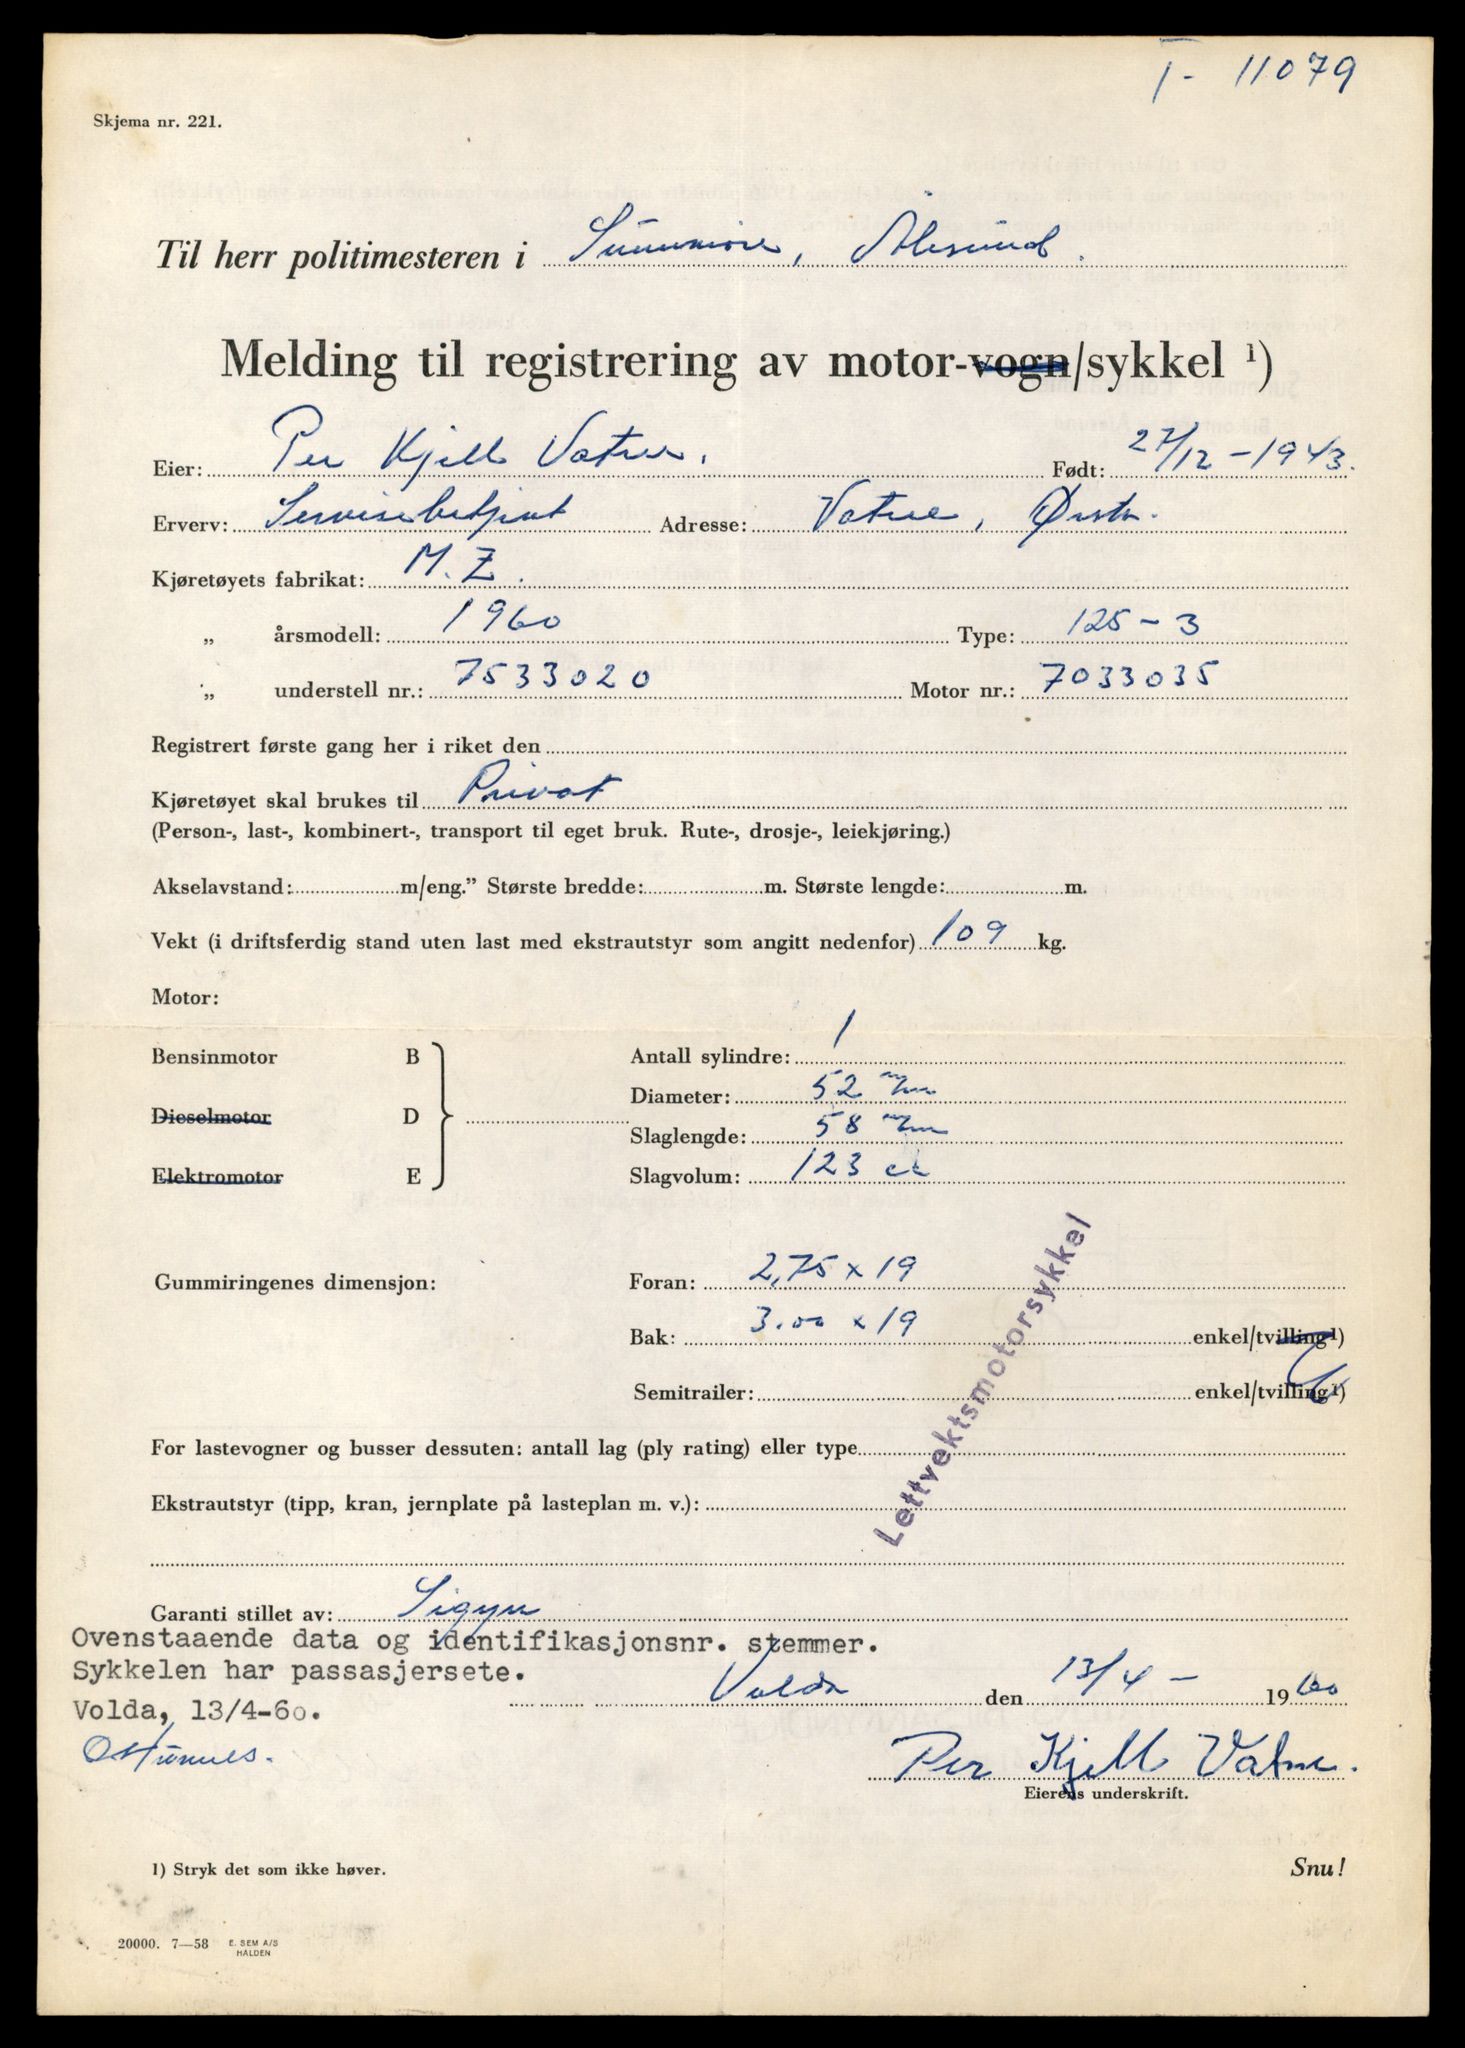 T- 11079
Skjema nr. 221.
Til herr politimesteren i Sunnmöre, Ålesund.
Melding til registrering av motor-vogn/sykkel ¹)
Eier: Per Kjell Vatne. Født: 27/12 - 1943.
Erverv: Servisebetjent Adresse: Vatne, Ørsta.
Kjøretøyets fabrikat: M.Z.
„ årsmodell: 1960 Type: 125 - 3
„ understell nr.: 7533020 Motor nr.: 7033035
Registrert første gang her i riket den
Kjøretøyet skal brukes til Privat
(Person-, last-, kombinert-, transport til eget bruk. Rute-, drosje-, leiekjøring.)
Akselavstand: m/eng.” Største bredde: m. Største lengde: m.
Vekt (i driftsferdig stand uten last med ekstrautstyr som angitt nedenfor) 109 kg.
Motor:
Bensinmotor B Antall sylindre: 1
Diameter: 52 m/m
Dieselmotor D
Slaglengde: 58 m/m
Elektromotor E Slagvolum: 123 cc
Gummiringenes dimensjon: Foran: 2,75 x 19
Bak: 3.00 x 19 enkel/tvilling¹)
Semitrailer: enkel/tvilling¹)
Lettvektsmotorsykkel
For lastevogner og busser dessuten: antall lag (ply rating) eller type
Ekstrautstyr (tipp, kran, jernplate på lasteplan m. v.):
Garanti stillet av: Sigyn
Ovenstaaende data og identifikasjonsnr. stemmer.
Sykkelen har passasjersete.
Volda den 13/4 - 1960
Volda, 13/4-6o.
Per Kjell Vatne.
Eierens underskrift.
1) Stryk det som ikke høver.
Snu!
20000. 7—58 E. SEM A/S
HALDEN